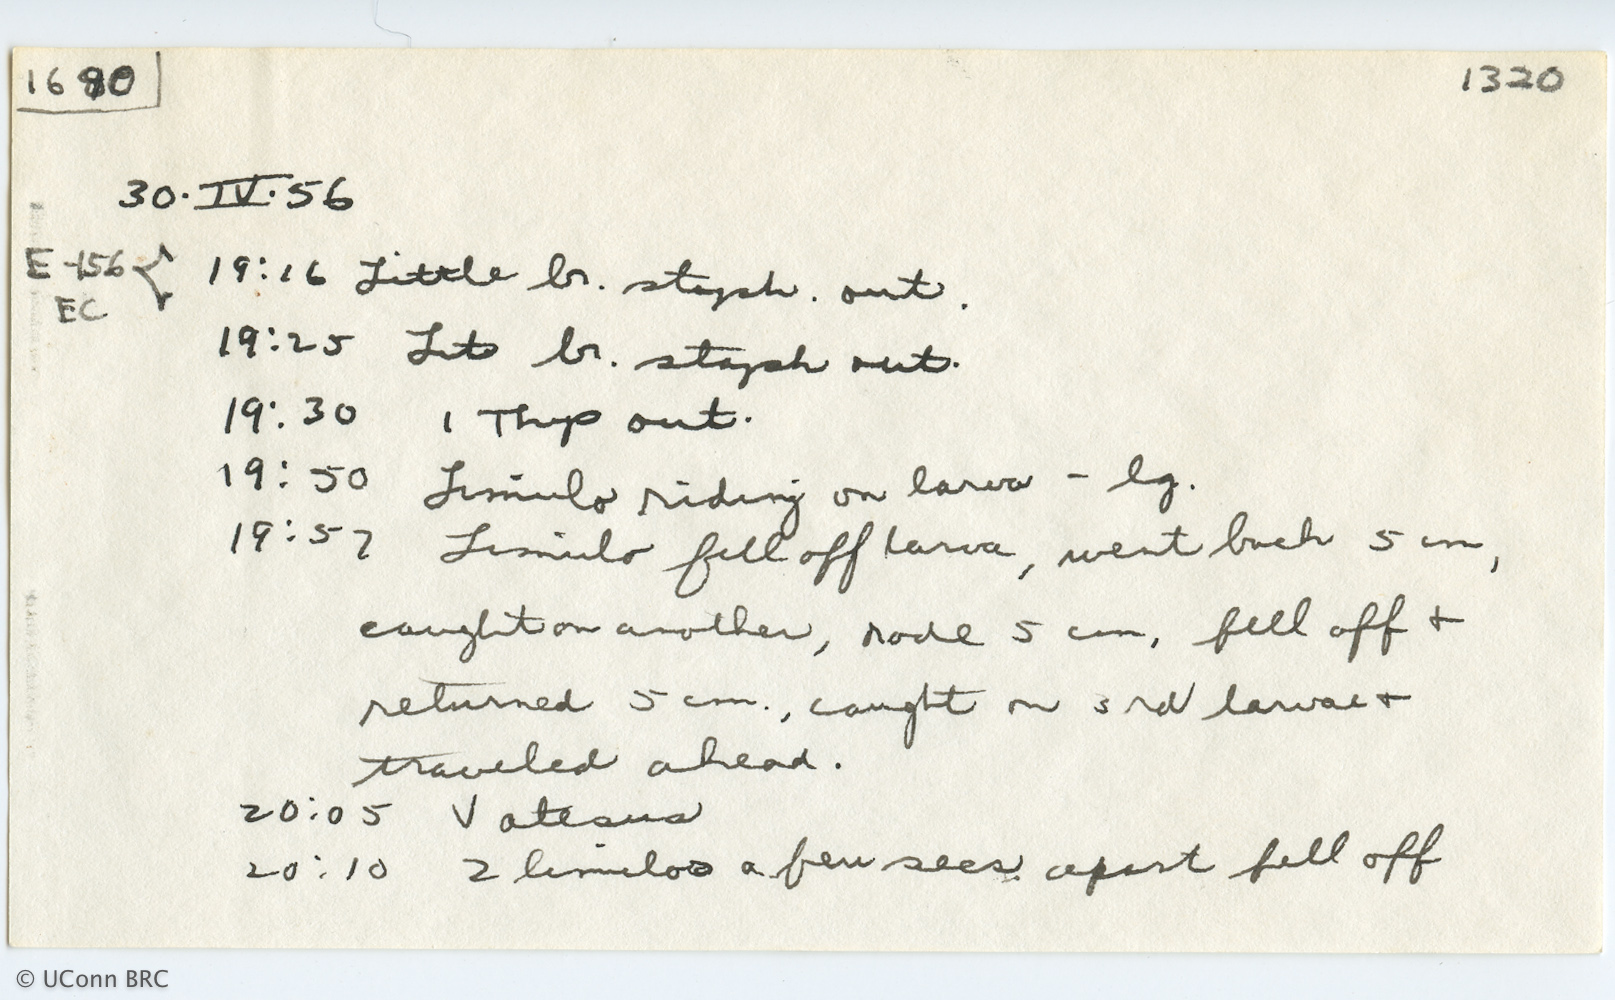 1680
1320
30·IV·56
E-156 EC { 19:16 Little br. staph. out.
19:25 Lit br. staph out.
19:30 1 Thyp out.
19:50 Limulo riding on larva - lg.
19:57 Limulo fell off larva, went back 5 cm,
caught on another, rode 5 cm, fell off +
returned 5 cm., caught on 3rd larvae +
traveled ahead.
20:05 Vatesus
20:10 2 limulos a few secs. apart fell off
© UConn BRC